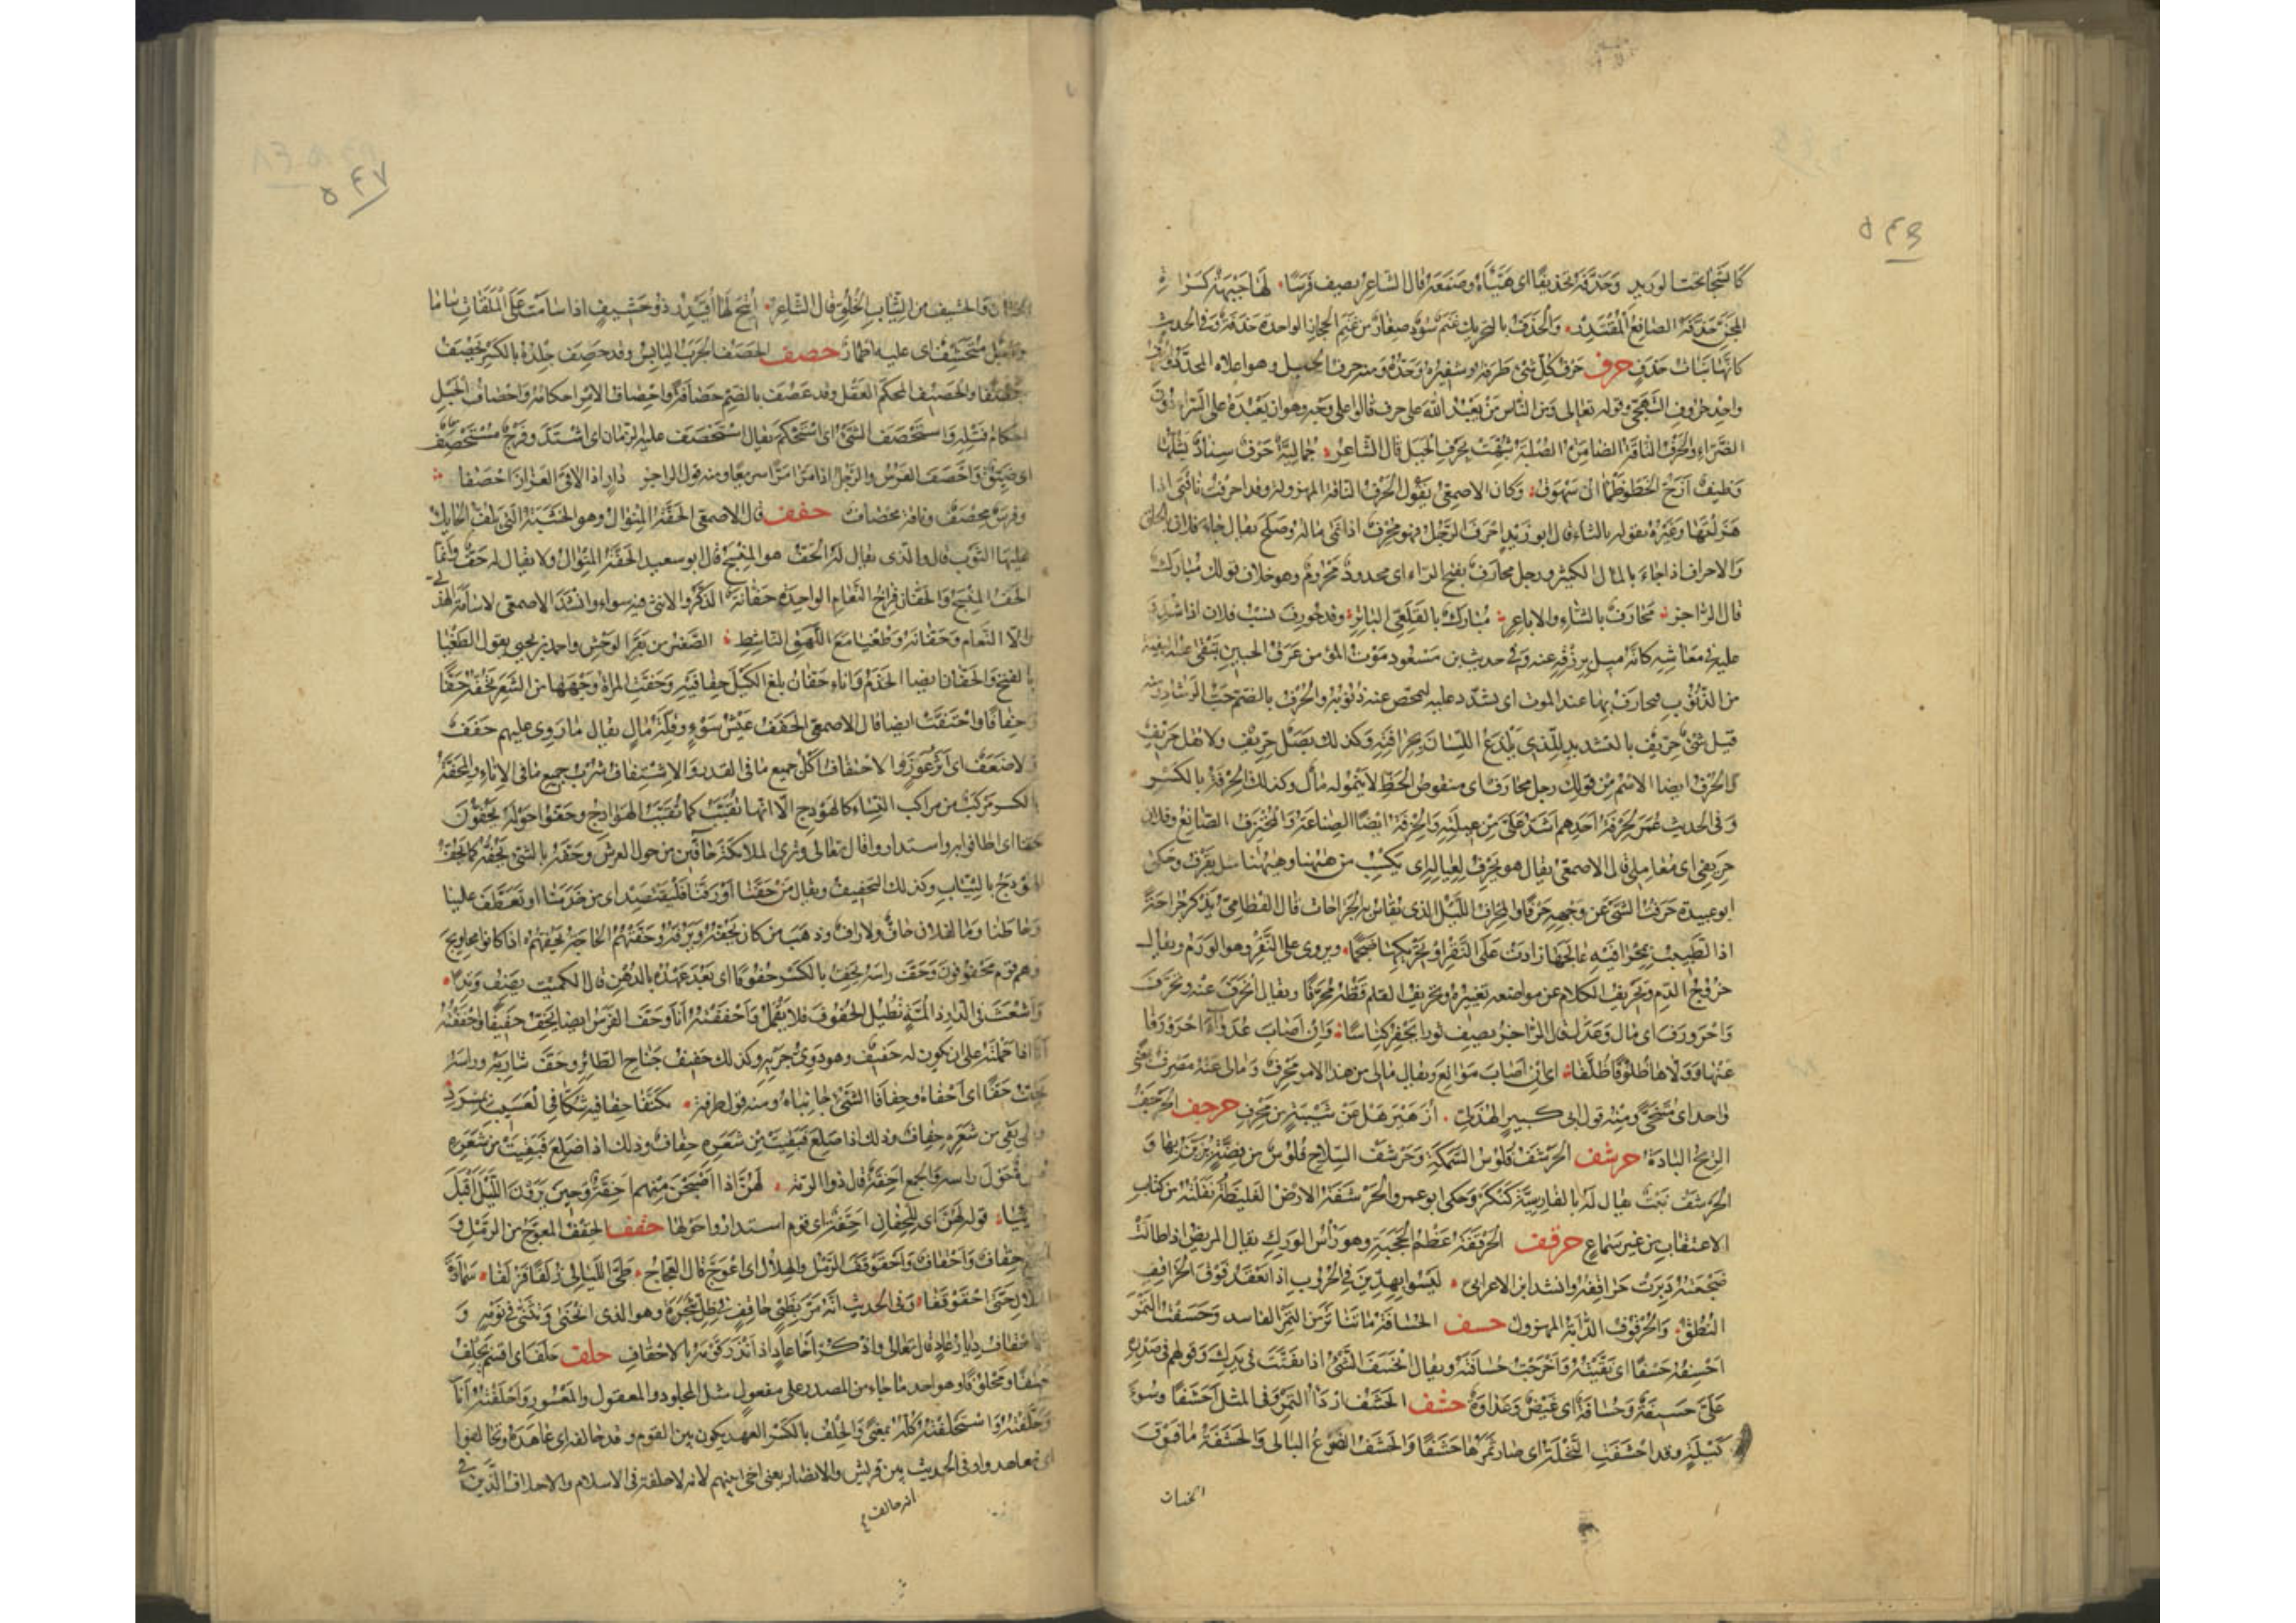 ٥٤٦
كأشجا تحت الوريد وحذّفه تحذيفًا اى هيّأه وصنعه قال الشاعر يصف فرسًا لها جبهة كسراة
المجنّ حذّفه الصانع المقتدر والحذف بالتحريك غنم سود صغار من غنم الحجاز الواحدة حذفة وفى الحديث
كانها بنات حذف حرف حرف كل شىء طرفه وشفيره وحدّه ومنه حرف الجبل وهو اعلاه المحدّد
واحد حروف التهجّى وقوله تعالى ومن الناس من يعبد الله على حرف قالوا على وجه وهو ان يعبده على السراء دون
الضراء والحرف الناقة الضامرة الصلبة شبّهت بحرف الجبل قال الشاعر جماليّة حرف سناد يشلّها
وظيف ازجّ الخطو ظمآن سهوق وكان الاصمعى يقول الحرف الناقة المهزولة وقد احرفت ناقتى اذا
هزلتها وغيره يقوله بالثاء قال ابو زيد احرف الرجل فهو محرف اذا نمى ماله وصلح يقال جاء فلان بالحلق
والاحراف اذا جاء بالمال الكثير ورجل محارف بفتح الراء اى محدود محروم وهو خلاف قولك مبارك
قال الراجز محارف بالشاء والاباعر مبارك بالقلعى الباتر وقد حورف كسب فلان اذا شدّد
عليه فى معاشه كانه ميل برزقه عنه وفى حديث بن مسعود موت المؤمن عرق الجبين تبقى عليه البقية
من الذنوب فيحارف بها عند الموت اى يشدّد عليه لتمحّص عنه ذنوبه والحرف بالضم حبّ الرشاد ومنه
قيل شىء حرّيف بالتشديد للذى يلذع اللسان بحرافته وكذلك بصل حرّيف ولا تقل حرّيف
والحرف ايضا الاسم من قولك رجل محارف اى منقوص الحظ لا ينمو له مال وكذلك الحرفة بالكسر
وفى الحديث عمر لحرفة احدهم اشدّ علىّ من عيلته والحرفة ايضًا الصناعة والمحترف الصانع وفلان
حريفى اى معاملى قال الاصمعى يقال هو يحرف لعياله اى يكسب من ههنا وههنا مثل يقرف وحكى
ابو عبيدة حرفت الشىء عن وجهه حرفًا والمحراف الميل الذى تقاس به الجراحات قال القطامى يذكر جراحة
اذا الطبيب بمحرافيه عالجها زادت على النقر او تحريكها ضجما ويروى على النفر وهو الورم ويقال
خروج الدم وتحريف الكلام عن مواضعه تغييره وتحريف القلم قطّه محرّفًا ويقال انحرف عنه وتحرّف
واحرورف اى مال وعدل قال الراجز يصف ثورا يحفر كناسًا وان اصاب عدواء احرورفا
عنها وولّاها ظلوفًا ظلّفا اى ان اصاب موانع ويقال مالى من هذا الامر محرف ومالى عنه مصرف بمعنى
واحد اى متنحّى ومنه قول ابى كبير الهذلى ازهير هل عن شيبة من محرف حرجف الحرجف
الريح الباردة حرشف الحرشف فلوس السمكة وحرشف السلاح فلوس من فضة يزيّن بها و
الحرشف نبت يقال له بالفارسية كنكر وحكى ابو عمرو الحرشفة الارض الغليظة نقلته من كتاب
الاعتقاب من غير سماع حرقف الحرقفة عظم الحجبة وهو راس الورك يقال المريض اذا طالت
ضجعته دبرت حراقفه وانشد ابن الاعرابى ليسوا بهدّين فى الحروب اذا تعقد فوق الحراقف
النطق والحرقوف الدابة المهزول حسف الحسافة ما تناثر من التمر الفاسد وحسفت التمر
احسفه حسفًا اى نقّيته واخرجت حسافته ويقال انحسف الشىء اذا تفتّت فى يدك وقولهم فى صدره
علىّ حسيفة وحسافة اى غيض وعداوة حشف الحشف اردأ التمر وفى المثل احشفًا وسوء
كيلة وقد احشفت النخلة اى صار تمرها حشفًا والحشف الضرع البالى والحشفة ما فوق
الختان
٥٤٧
الختان والحشيف من الثياب الخلق قال الشاعر اتيح لها اقيدر ذو حشيف اذا سامت على الملقات ساما
ورجل متحشّف اى عليه اطمار حصف الحصف الجرب اليابس وقد حصف جلده بالكسر يحصف
حصفا والحصيف المحكم العقل وقد حصف بالضم حصافة واحصاف الامر احكامه واحصاف الحبل
احكام فتله واستحصف الشىء اى استحكم يقال استحصف عليه الزمان اى اشتدّ وفرج مستحصف
اى ضيّق واحصف الفرس والرجل اذا مرّ مرًّا سريعًا ومنه قول الراجز ذار اذا لاقى العزاز احصفا
وفرس محصف وناقة محصاف حفف قال الاصمعى الحفّة المنوال وهو الخشبة التى يلفّ الحائك
عليها الثوب قال والذى يقال له الحفّ هو المنسج قال ابو سعيد الحفّة المنوال ولا يقال له حفّ وانما
الحفّ المنسج والحفّان فراخ النعام الواحدة حفّانة الذكر والانثى فيه سواء وانشد الاصمعى لاسامة الهذلى
والّا النعام وحفّانه وطغيا مع اللهق الناشط الصغير من بقر الوحش واحمد بن يحيى يقول الطغيا
بالفتح والحفّان ايضا الخدم واناء حفّان بلغ الكيل حفافيه وحفّت المراة وجهها من الشعر تحفّه حفًّا
وحفافًا واحتفّت ايضا قال الاصمعى الحفف عيش سوء وقلة مال يقال ما روى عليهم حفف
ولا ضفف اى اثر عوز والاحتفاف اكل جميع ما فى القدر والاشتفاف شرب جميع ما فى الاناء والمحفّة
بالكسر مركب من مراكب النساء كالهودج الّا انها لا تقبّب كما تقبّب الهوادج وحفّوا حوله يحفّون
حفّا اى اطافوا به واستداروا قال تعالى وترى الملائكة حافّين من حول العرش وحفّه بالشىء يحفّه كما يحفّ
الهودج بالثياب وكذلك التحفيف ويقال من حفّنا او رفّنا فليقتصد اى من خدمنا او تعطّف علينا
وحاطنا وما لفلان حافّ ولا رافّ وذهب من كان يحفّه ويرفّه وحفّتهم الحاجة تحفّهم اذا كانوا محاويج
وهم قوم محفوفون وحفّ راسه يحفّ بالكسر حفوفًا اى بعد عهده بالدهن قال الكميت يصف وتدا
واشعث فى الدار ذا لمّة يطيل الحفوف فلا يقمل واحففته انا وحفّ الفرس ايضا يحفّ حفيفًا واحففته
انا اذا حملته على ان يكون له حفيف وهو دوىّ جريه وكذلك حفيف جناح الطائر وحفّ شاربه وراسه
يحفّ حفًّا اى احفاه وحفافا الشىء جانباه ومنه قول طرفة تكنّفا حفافيه شكّا فى العسيب بمسرد
بقى من شعره حفاف وذلك اذا صلع فبقيت من شعره حفاف وذلك اذا صلع فبقيت من شعره
حول راسه والجمع احفّة قال ذو الرمة لهنّ اذا اصبحن منهم احفّة وحين يرون الليل اقبل
جائيا قوله لهنّ اى للجفان احفّة اى قوم استداروا حولها حقف الحقف المعوج من الرمل و
حقاف واحقاف واحقوقف الرمل والهلال اى اعوجّ قال العجاج طىّ الليالى زلفًا فزلفا سماوة
الهلال حتى احقوقفا وفى الحديث انه مرّ بظبى حاقف فى ظلّ شجرة وهو الذى انحنى وتثنّى فى نومه و
الاحقاف ديار عاد قال تعالى واذكر اخا عاد اذ انذر قومه بالاحقاف حلف حلف اى اقسم يحلف
حلفًا ومحلوفًا وهو احد ما جاء من المصدر على مفعول مثل المجلود والمعقول والمعسور واحلفته انا
وحلّفته واستحلفته كله بمعنًى والحلف بالكسر العهد يكون بين القوم وقد حالفه اى عاهده وتحالفوا
اى تعاهدوا وفى الحديث بين قريش والانصار يعنى اخى بينهم لانه لا حلف فى الاسلام والاحلاف الذين فى
انه حالف